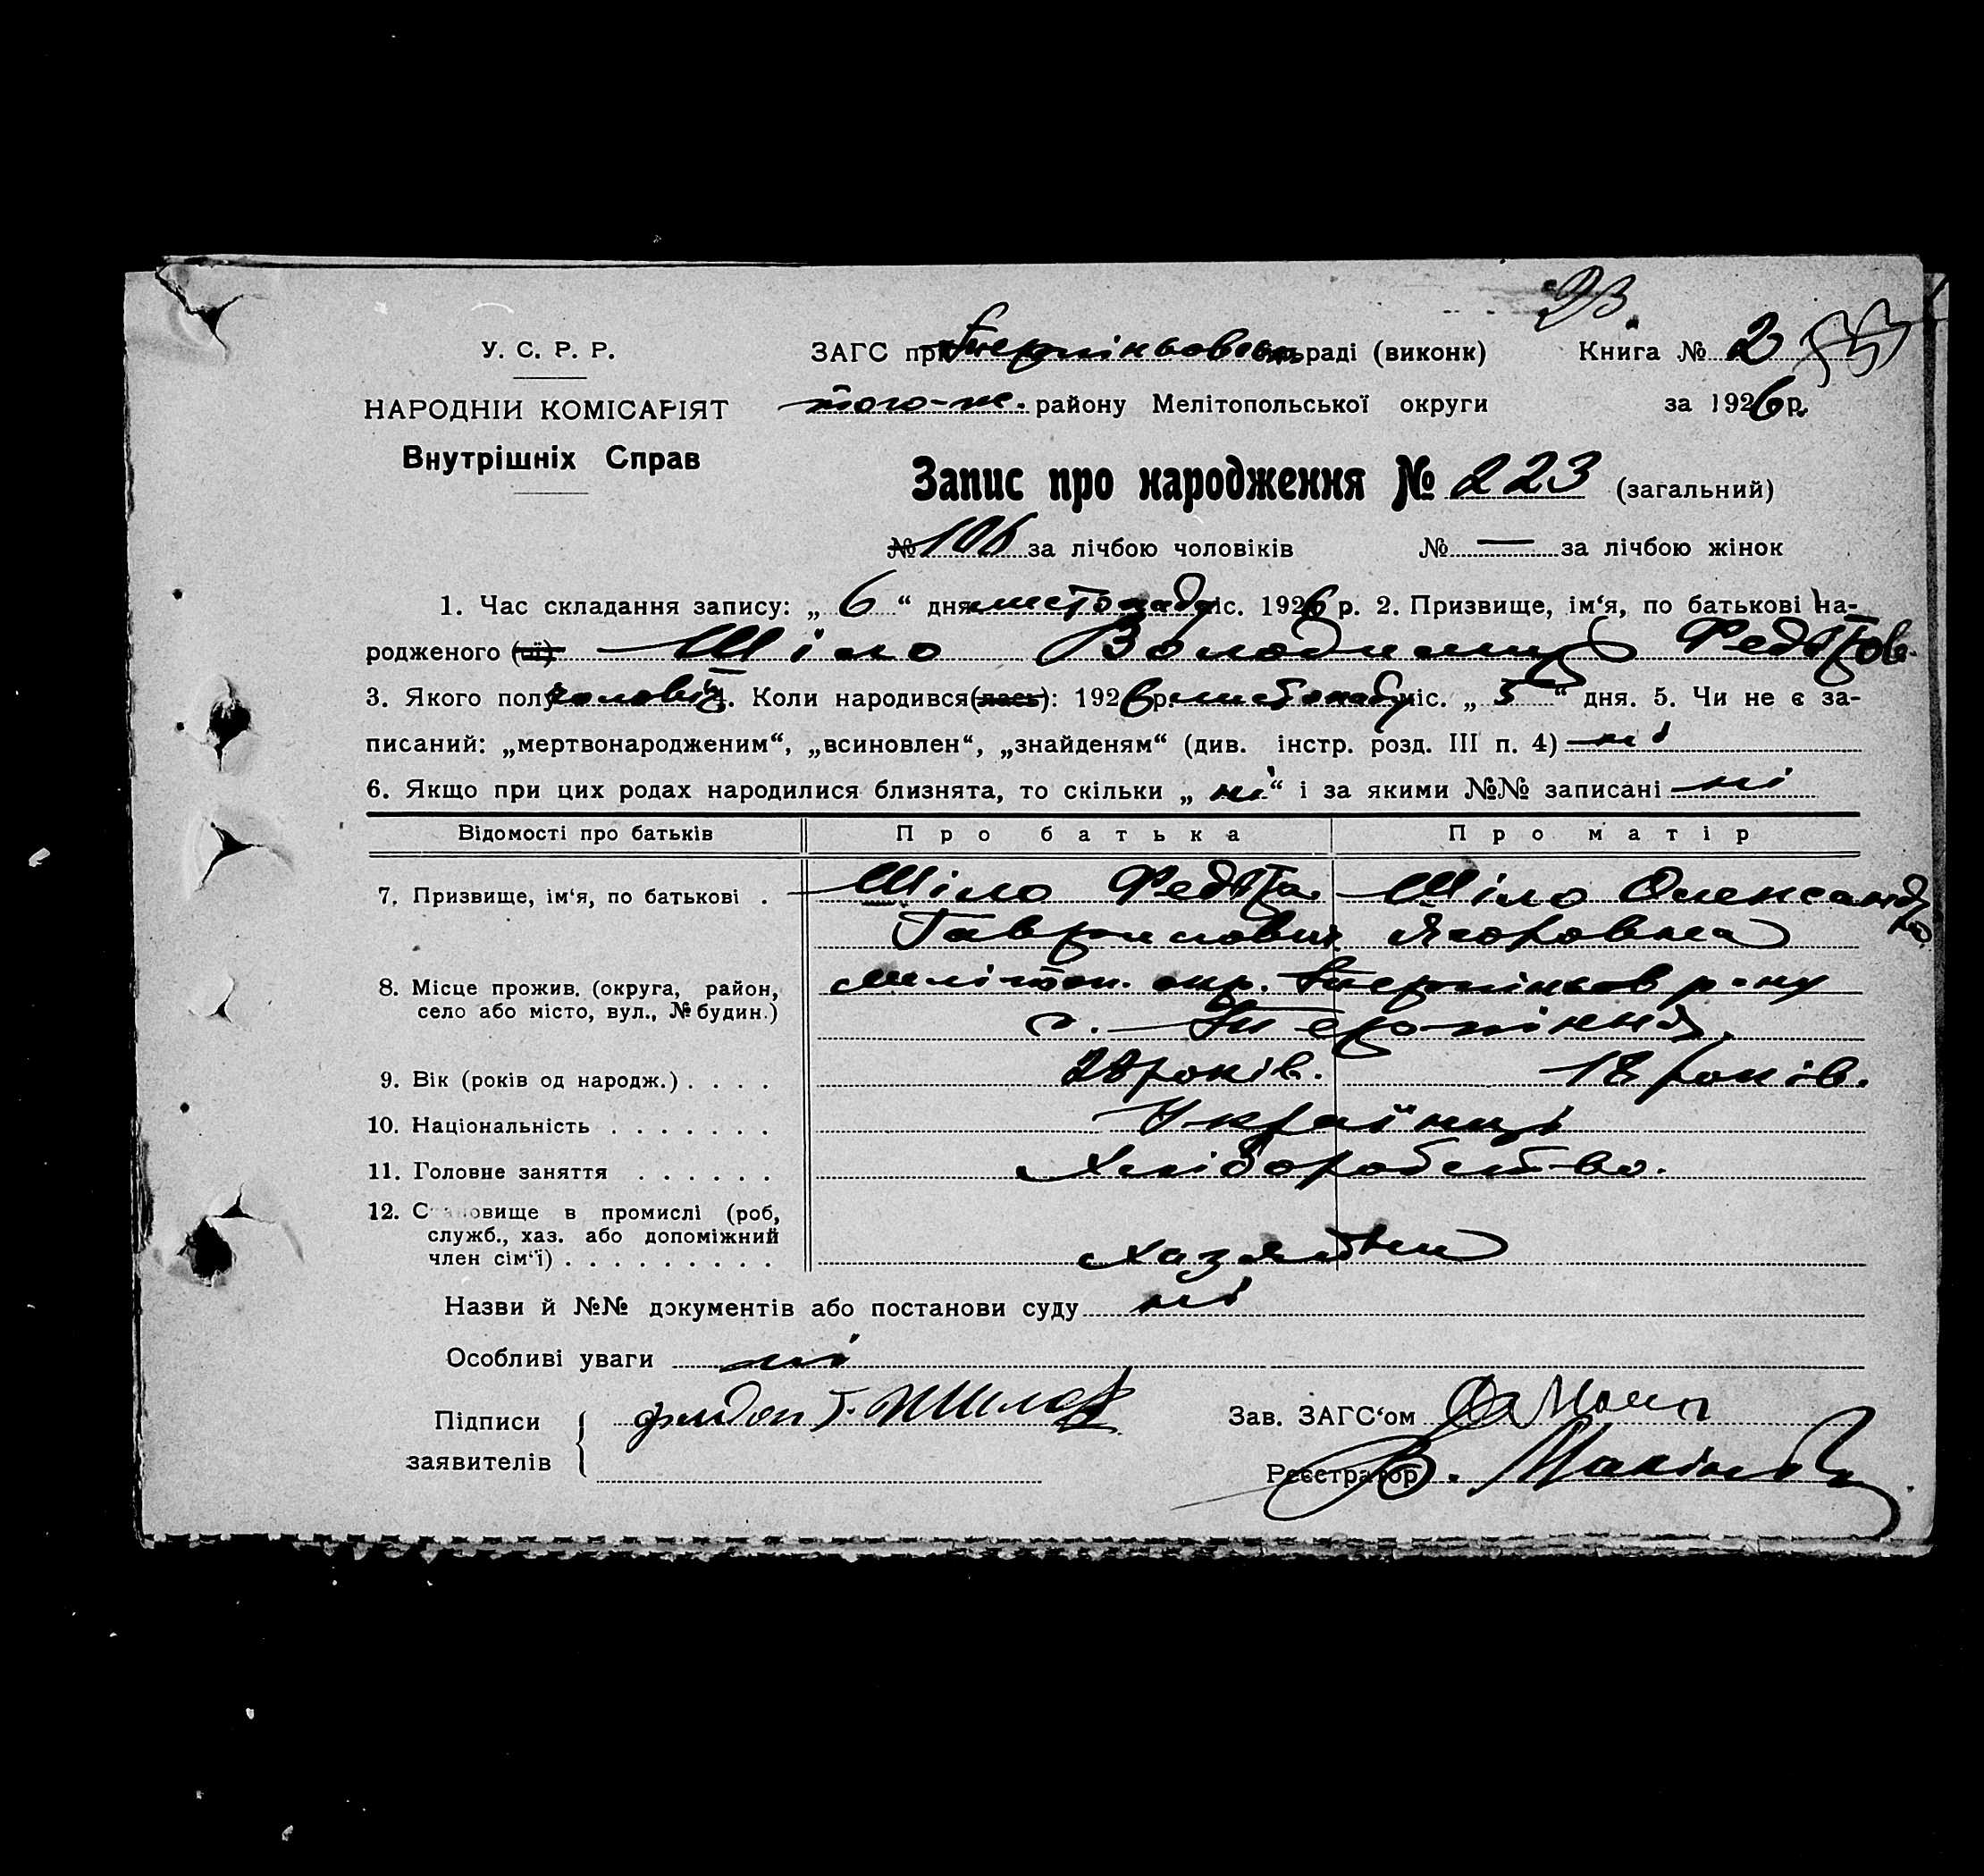 23
У. С. Р. Р. ЗАГС при раді (виконк) Книга № 2
НАРОДНІЙ КОМІСАРІЯТ того-ж. району Мелітопольської округи за 1926 р.
Внутрішніх Справ
Запис про народження № 223 (загальний)
№ 106 за лічбою чоловіків № — за лічбою жінок
1. Час складання запису: „ 6 “ дня листопада міс. 1926 р. 2. Призвище, ім‘я, по батькові на-
родженого (ої) Шіло Володимир
3. Якого полу 4. Коли народився(лась): 1926 р. листопаду міс. „ 5 “ дня. 5. Чи не є за-
писаний: „мертвонародженим“, „всиновлен“, „знайденям“ (див. інстр. розд. III п. 4) ні
6. Якщо при цих родах народилися близнята, то скільки „ ні “ і за якими №№ записані ні
Відомості про батьків Про батька Про матір
7. Призвище, ім‘я, по батькові . Шіло Шіло Олександра
Гаврилович Ягоровна
8. Місце прожив. (округа, район, Мелітоп. окр. р-ну
село або місто, вул., № будин.) с.
9. Вік (років од народж.) . . . . 28 років. 18 років.
10. Національність . . . . . . . Українці
11. Головне заняття . . . . . . Хліборобство.
12. Становище в промислі (роб,
служб., хаз. або допоміжний
член сім‘ї) . . . . . . . . .
Назви й №№ документів або постанови суду ні
Особливі уваги ні
Підписи Зав. ЗАГС‘ом
заявителів Реєстратор В.